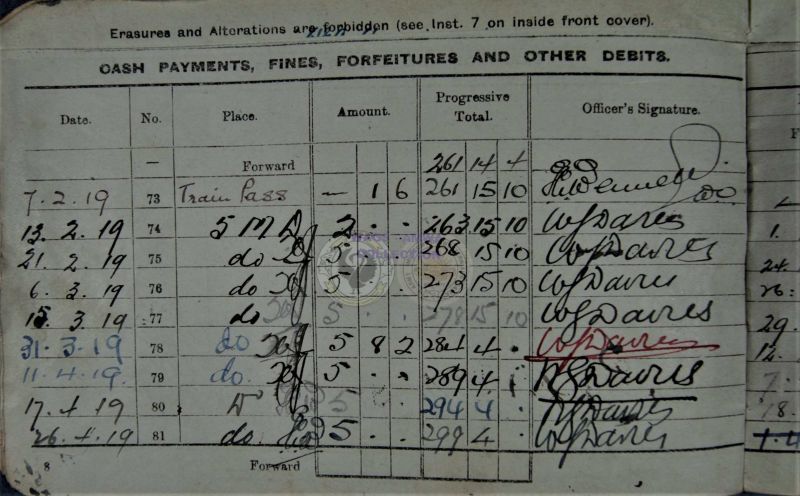 Erasures and Alterations are forbidden (see Inst. 7 on inside front cover).
CASH PAYMENTS, FINES, FORFEITURES AND OTHER DEBITS.
Date. No. Place. Amount. Progressive Total. Officer's Signature.
— Forward 261 14 4
7.2.19 73 Train Pass — 1 6 261 15 10
13.2.19 74 5 M D 2 . . 263 15 10 W J Davies
21.2.19 75 do 5 . . 268 15 10 W J Davies
6.3.19 76 do 5 . . 273 15 10 W J Davies
15.3.19 77 do 5 . . 278 15 10 W J Davies
31.3.19 78 do 5 8 2 284 4 . W J Davies
11.4.19. 79 do. 5 . . 289 4 W J Davies
17.4.19 80 5 . . 294 4 W J Davies
26.4.19 81 do. 5 . . 299 4 . W J Davies
8 Forward